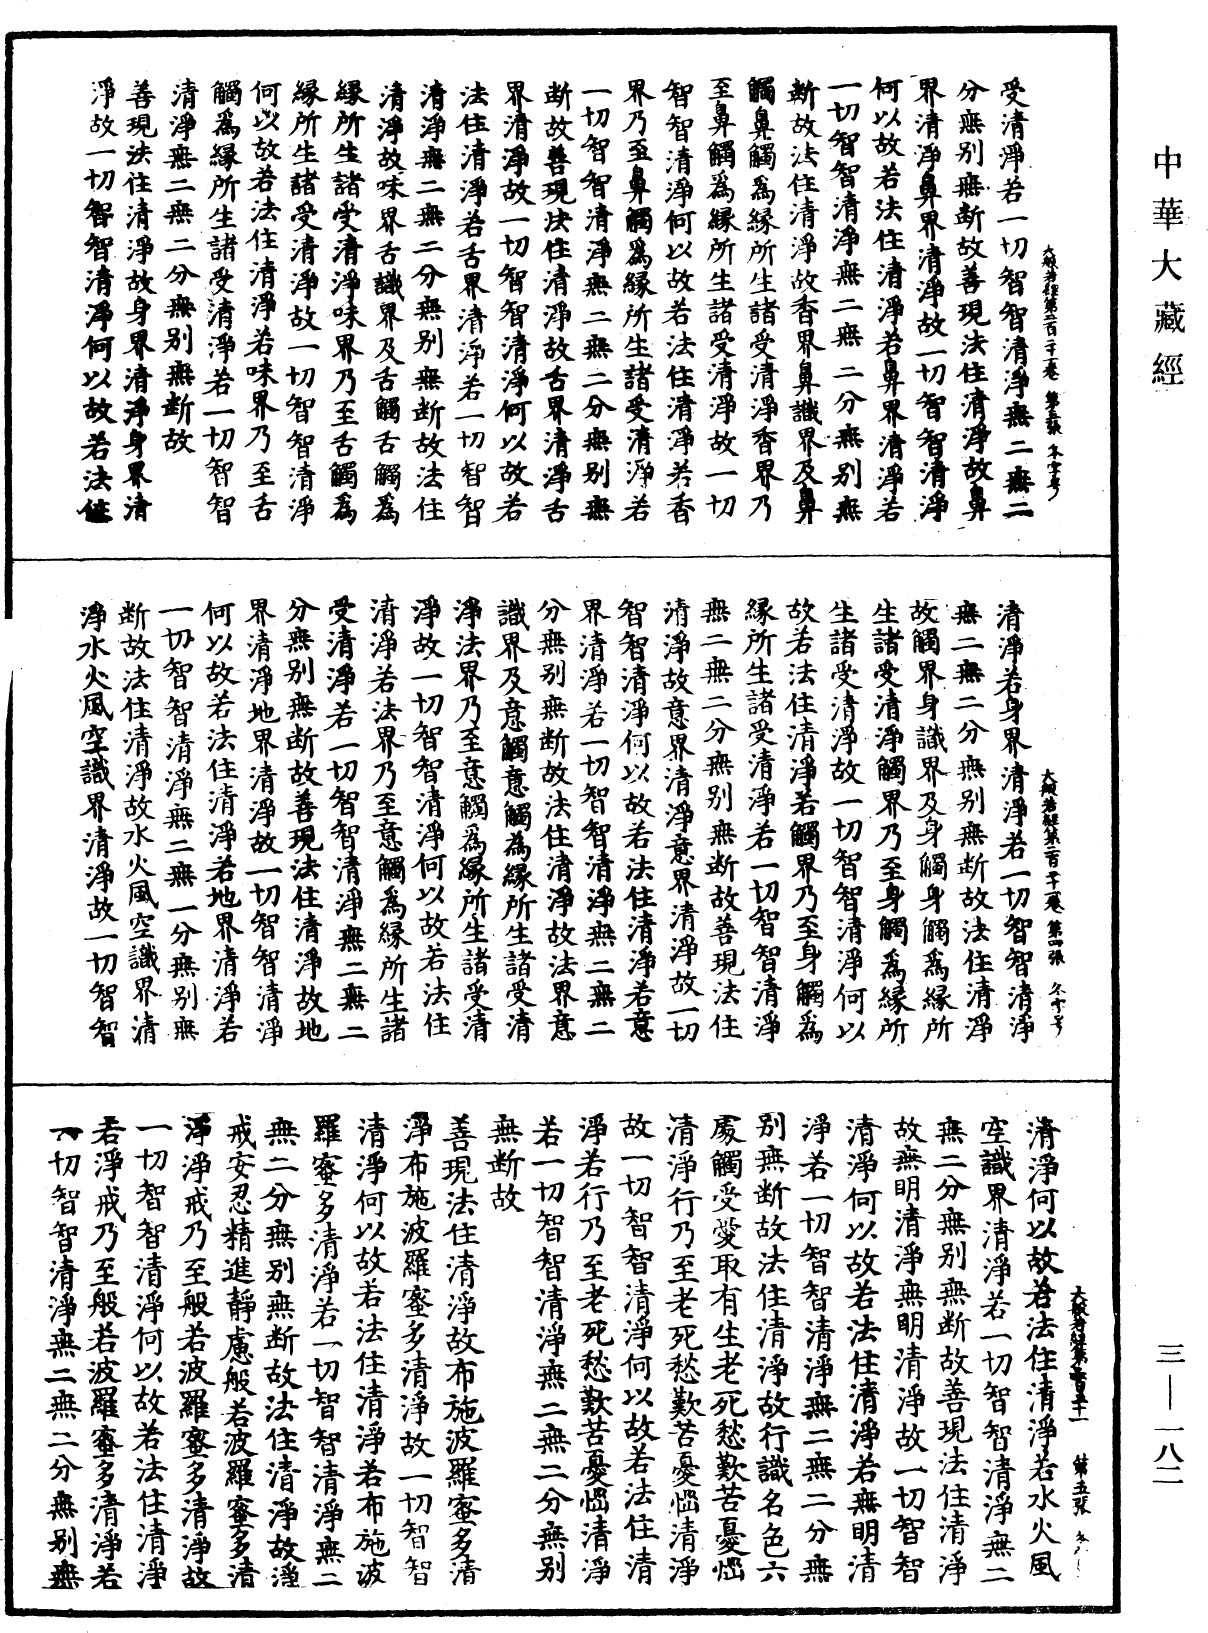 中華大藏經
受清淨若一切智智清淨無二無二
分無別無斷故善現法住清淨故鼻
界清淨鼻界清淨故一切智智清淨
何以故若法住清淨若鼻界清淨若
一切智智清淨無二無二分無別無
斷故法住清淨故香界鼻識界及鼻
觸鼻觸爲緣所生諸受清淨香界乃
至鼻觸爲緣所生諸受清淨故一切
智智清淨何以故若法住清淨若香
界乃至鼻觸爲緣所生諸受清淨若
一切智智清淨無二無二分無別無
斷故善現法住清淨故舌界清淨舌
界清淨故一切智智清淨何以故若
法住清淨若舌界清淨若一切智智
清淨無二無二分無別無斷故法住
清淨故味界舌識界及舌觸舌觸爲
緣所生諸受清淨味界乃至舌觸爲
緣所生諸受清淨故一切智智清淨
何以故若法住清淨若味界乃至舌
觸爲緣所生諸受清淨若一切智智
清淨無二無二分無別無斷故
善現法住清淨故身界清淨身界清
淨故一切智智清淨何以故若法住
大般若經第二百二十一卷 第四張
清淨若身界清淨若一切智智清淨
無二無二分無別無斷故法住清淨
故觸界身識界及身觸身觸爲緣所
生諸受清淨觸界乃至身觸爲緣所
生諸受清淨故一切智智清淨何以
故若法住清淨若觸界乃至身觸爲
緣所生諸受清淨若一切智智清淨
無二無二分無別無斷故善現法住
清淨故意界清淨意界清淨故一切
智智清淨何以故若法住清淨若意
界清淨若一切智智清淨無二無二
分無別無斷故法住清淨故法界意
識界及意觸意觸爲緣所生諸受清
淨法界乃至意觸爲緣所生諸受清
淨故一切智智清淨何以故若法住
清淨若法界乃至意觸爲緣所生諸
受清淨若一切智智清淨無二無二
分無別無斷故善現法住清淨故地
界清淨地界清淨故一切智智清淨
何以故若法住清淨若地界清淨若
一切智智清淨無二無二分無別無
斷故法住清淨故水火風空識界清
淨水火風空識界清淨故一切智智
第五張
清淨何以故若法住清淨若水火風
空識界清淨若一切智智清淨無二
無二分無別無斷故善現法住清淨
故無明清淨無明清淨故一切智智
清淨何以故若法住清淨若無明清
淨若一切智智清淨無二無二分無
別無斷故法住清淨故行識名色六
處觸受愛取有生老死愁歎苦憂惱
清淨行乃至老死愁歎苦憂惱清淨
故一切智智清淨何以故若法住清
淨若行乃至老死愁歎苦憂惱清淨
若一切智智清淨無二無二分無別
無斷故
善現法住清淨故布施波羅蜜多清
淨布施波羅蜜多清淨故一切智智
清淨何以故若法住清淨若布施波
羅蜜多清淨若一切智智清淨無二
無二分無別無斷故法住清淨故淨
戒安忍精進靜慮般若波羅蜜多清
淨淨戒乃至般若波羅蜜多清淨故
一切智智清淨何以故若法住清淨
若淨戒乃至般若波羅蜜多清淨若
一切智智清淨無二無二分無別無
三—一八二